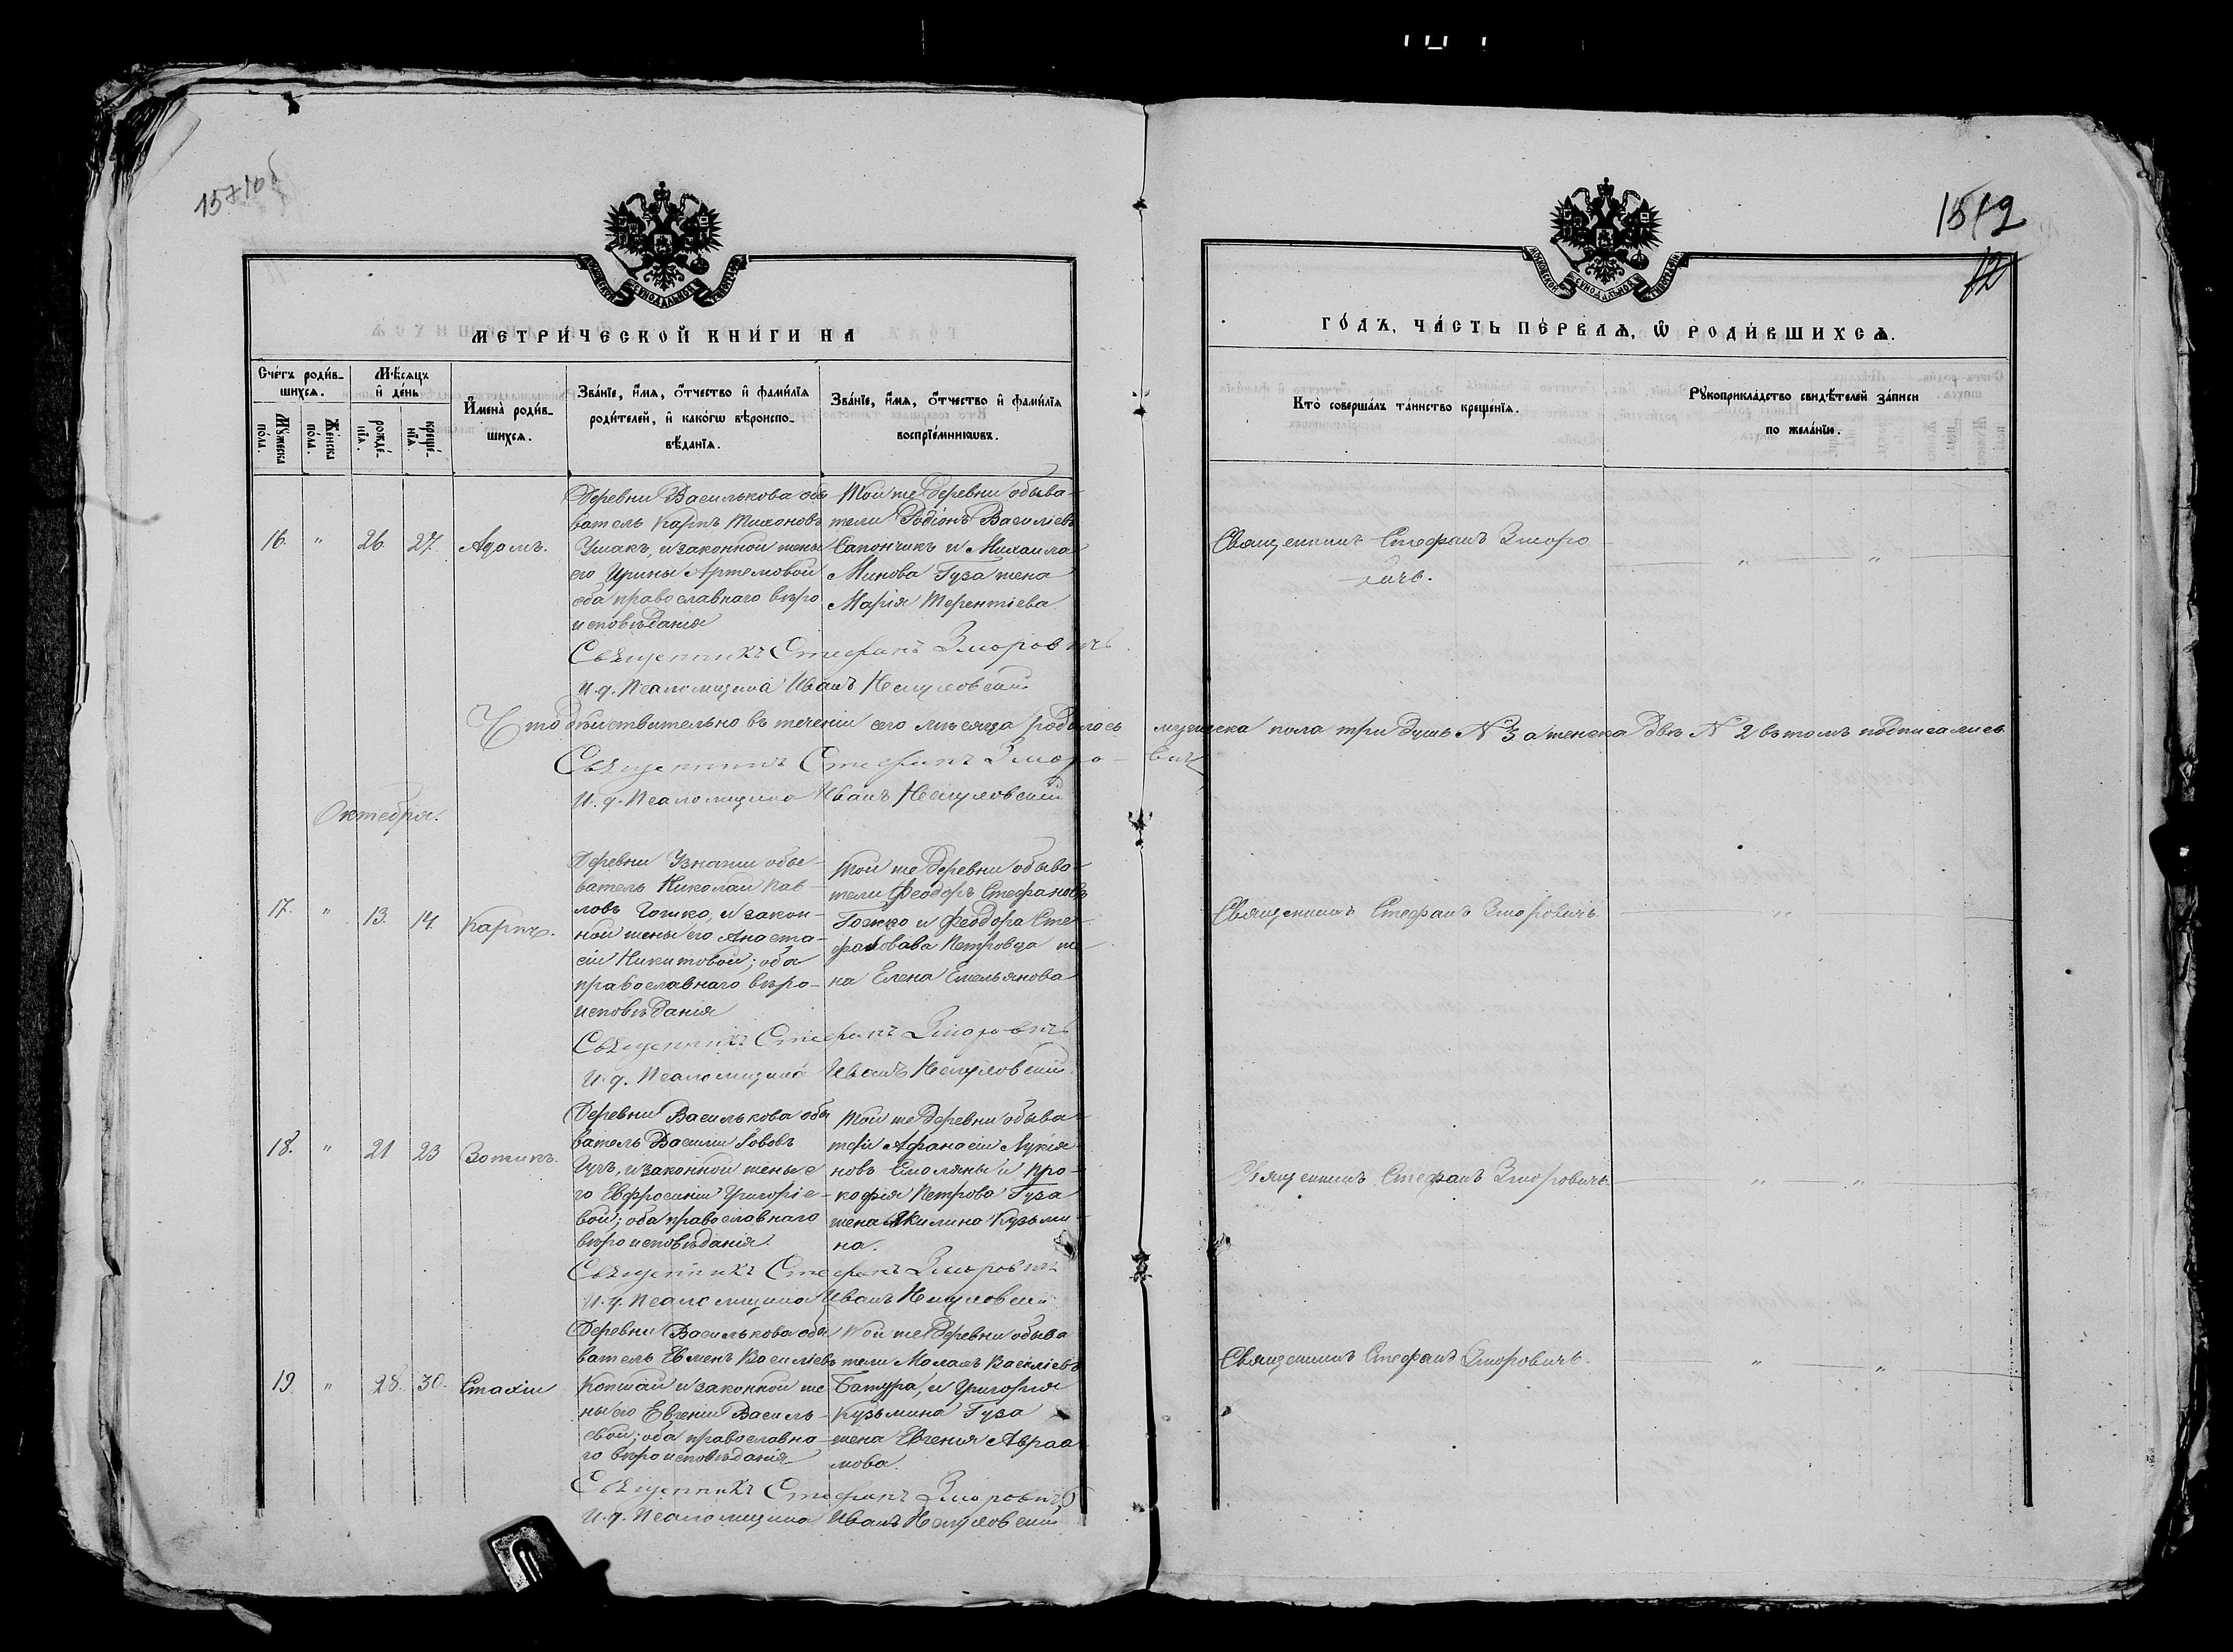 157 10б
1512
12
МОСКОВСКОЙ СѴНОДАЛЬНОЙ ТИПОГРАФІИ
МОСКОВСКОЙ СѴНОДАЛЬНОЙ ТИПОГРАФІИ
МЕТРИ́ЧЕСКОЙ КНИ́ГИ НА
ГО́ДЪ, ЧА́СТЬ ПЕ́РВАѦ, Ѡ҆ РОДИ́ВШИХСѦ.
Сче́тъ роди́в-
шихсѧ.
Мѣ́сѧцъ
и҆ де́нь
Мꙋ́жеска по́ла.
Же́нска по́ла.
рожде́-нїѧ.
креще́-нїѧ.
И҆мена̀ роди́в-
шихсѧ.
Зва́нїе, и҆́мѧ, ѻ҆́тчество и҆ фами́лїѧ
роди́телей, и҆ како́гѡ вѣроиспо-
вѣ́данїѧ.
Зва́нїе, и҆́мѧ, ѻ҆́тчество и҆ фами́лїѧ
воспрїе́мникѡвъ.
Кто̀ соверша́лъ та́инство креще́нїѧ.
Рꙋкоприкла́дство свидѣ́телей за́писи
по жела́нїю.
16. " 26 27. Адамъ.
Деревни Василькова обы
ватель Карпъ Тихоновъ
Ушакъ, и законной жены
его Ирины Артемовой
оба православнаго вѣро
исповѣданія
Той же деревни обыва-
тели Родіонъ Василіевъ
Сапончикъ и Михаила
Минова Гуза жена
Марія Терентіева
Священникъ Стефанъ Зморо
вичъ.
Священникъ Стефанъ Зморовичъ.
И. д. Псаломщика Иванъ
Что дѣйствительно въ теченіи сего мѣсяца родилось мужеска пола три душъ №3 а женска двѣ №2 въ томъ подписались
Священникъ Стефанъ Зморо-вичъ
И. д. Псаломщика Иванъ
Октября.
17. " 13. 14. Карпъ.
Деревни Узнажи обы-
ватель Николай Пав-
ловъ Гошко, и закон-
ной жены его Анаста-
сіи Никитовой; оба
православнаго вѣро-
исповѣданія
Той же деревни обыва-
тели Феодоръ Стефановъ
и Феодора Сте-
Петровца же
на Елена Емельянова
Священникъ Стефанъ Зморовичъ
Священникъ Стефанъ Зморовичъ
И. д. Псаломщика Иванъ
18. " 21 23 Зотикъ.
Деревни Василькова обы
ватель Василій Іововъ
и законной жены е
го Евфросиніи Григоріе-
вой; оба православнаго
вѣроисповѣданія.
Той же деревни обыва
тели Афанасій Лукія
новъ и Про-
кофія Петрова Гуза
жена Акилина Кузьми-
на.
Священникъ Стефанъ Зморовичъ
Священникъ Стефанъ Зморовичъ
И. д. Псаломщика Иванъ
19 " 28. 30. Стахій
Деревни Василькова обы
ватель Евменъ Василіевъ
и законной же
ны его Евгеніи Василь-
евой; оба православна-
го вѣроисповѣданія
Той же деревни обыва
тели Василіевъ
Батура, и Григорія
Кузьмина Гуза
жена Евгенія Авраа-
мова.
Священникъ Стефанъ Зморовичъ.
Священникъ Стефанъ Зморовичъ
И. д. Псаломщика Иванъ